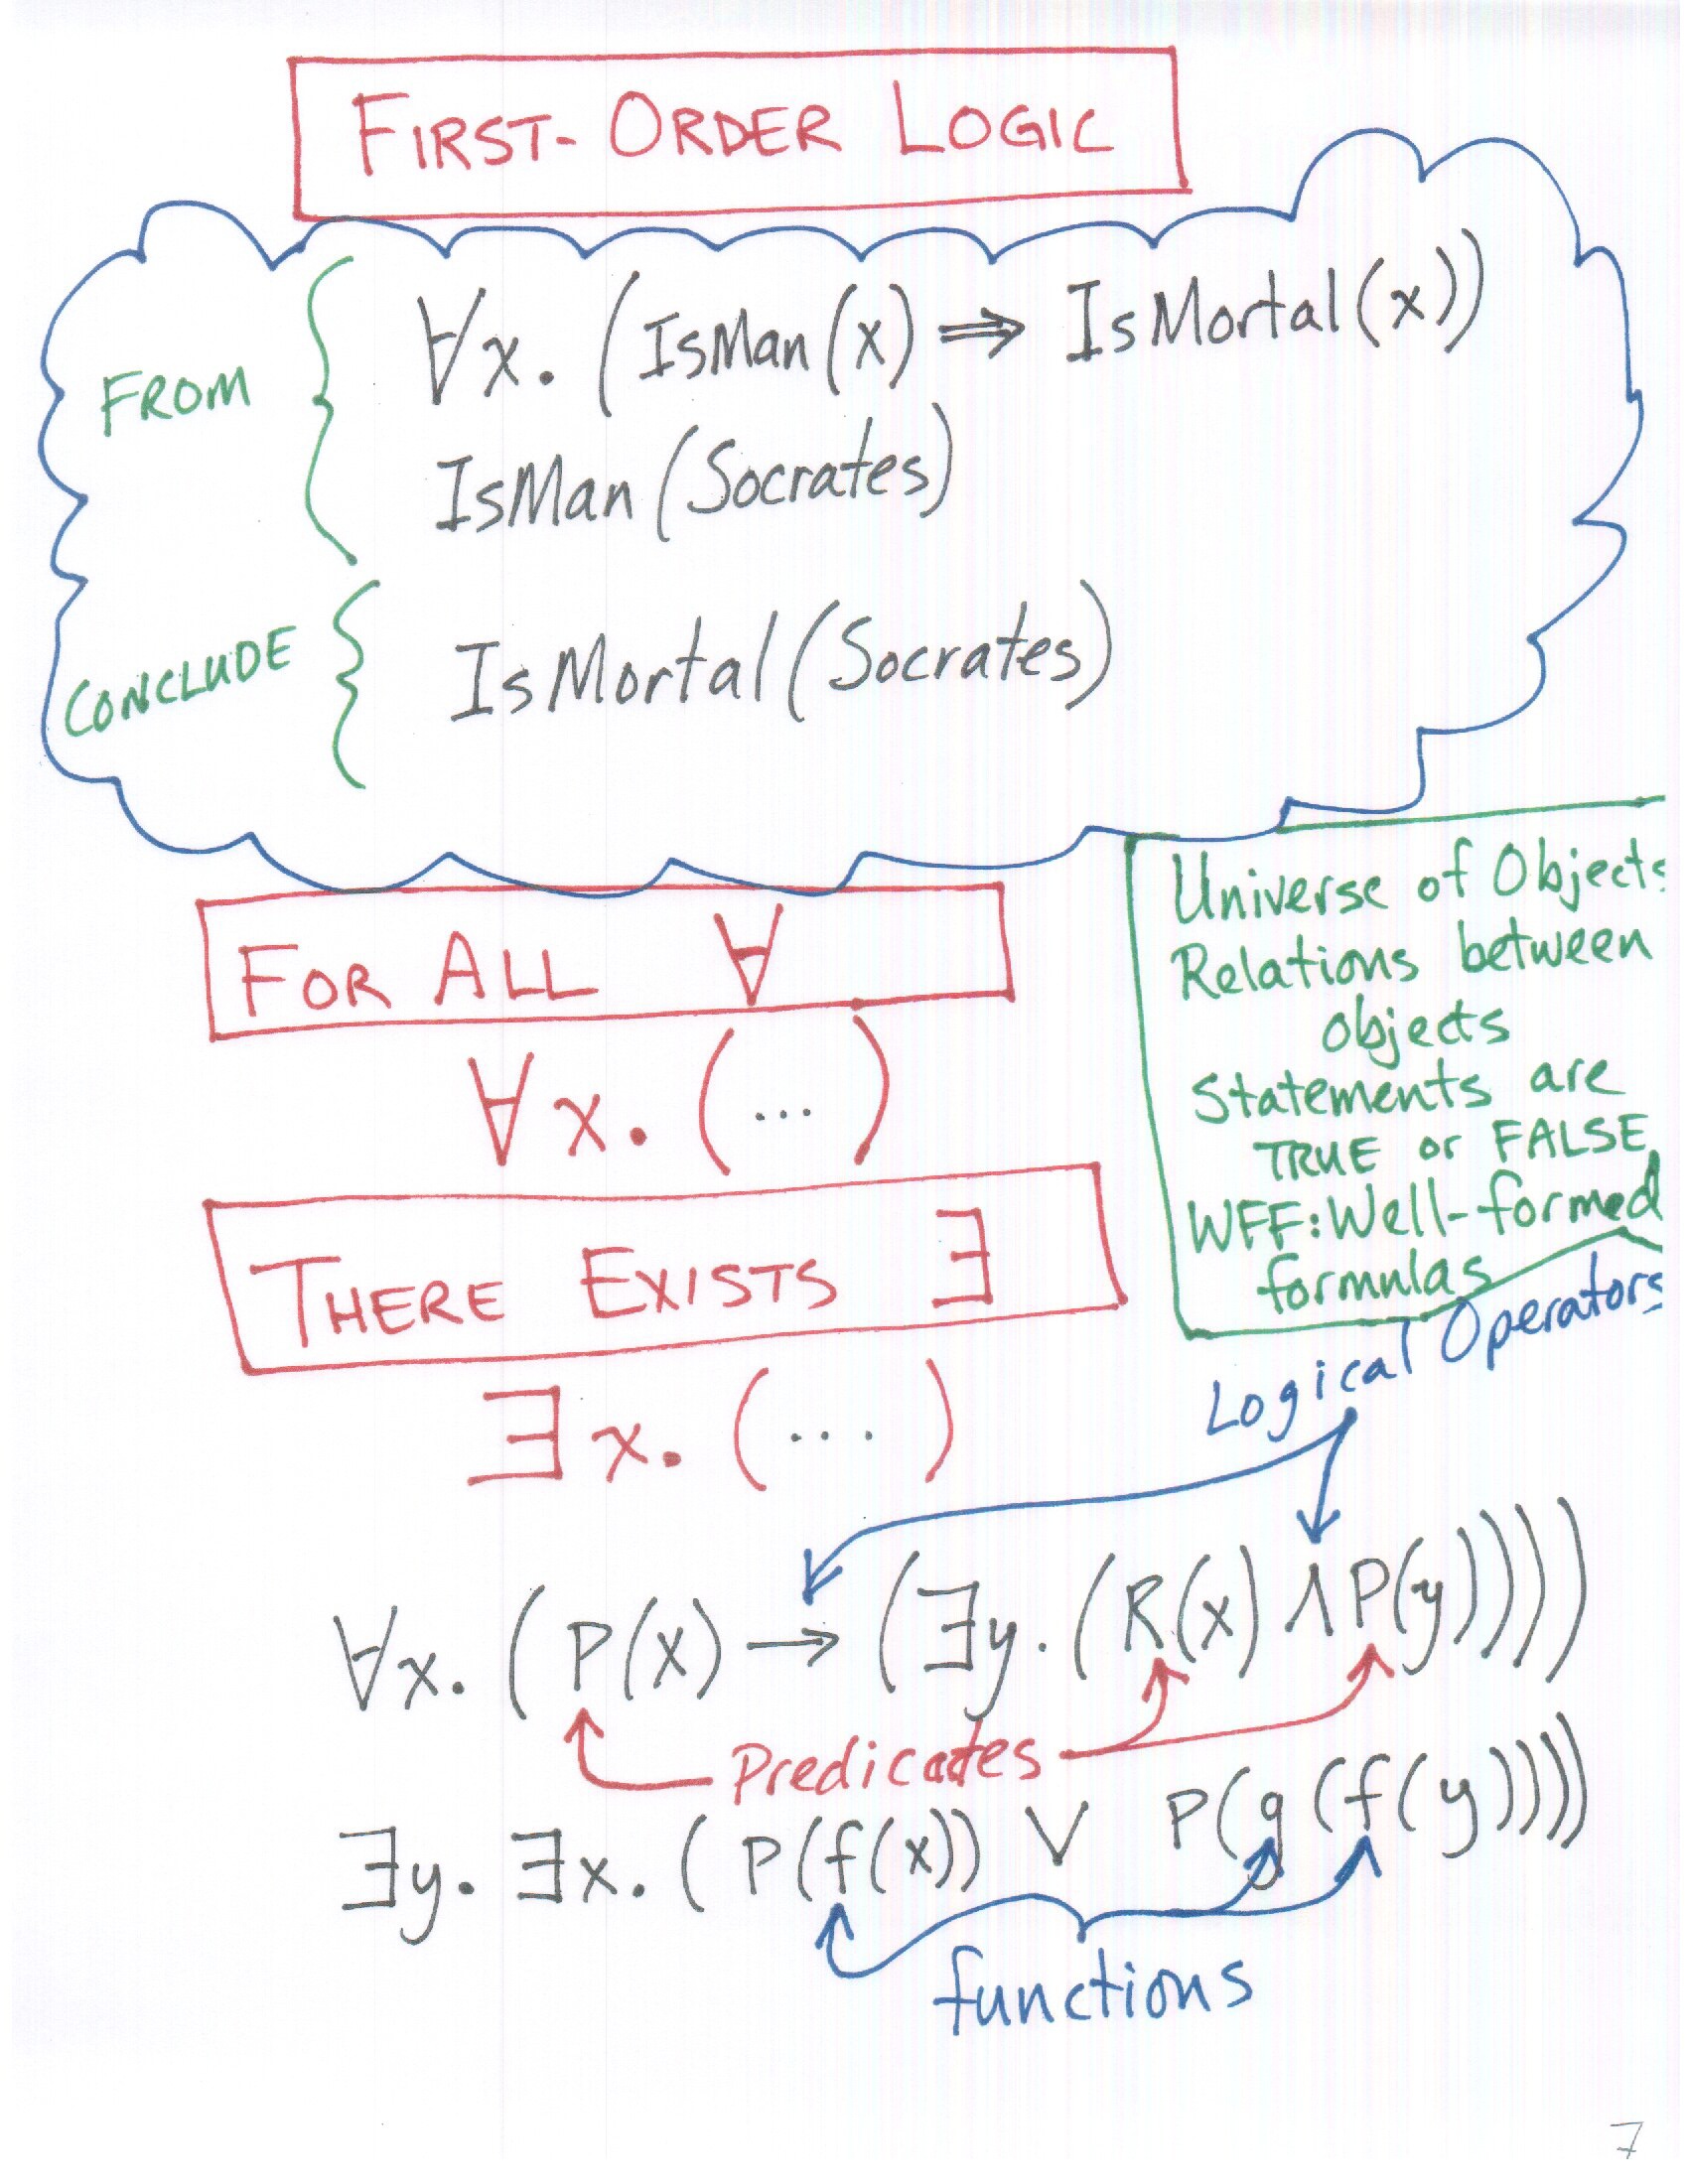 FIRST-ORDER LOGIC
FROM
∀x. (IsMan(x) ⇒ IsMortal(x))
IsMan(Socrates)
CONCLUDE
IsMortal(Socrates)
FOR ALL ∀
∀x. (...)
THERE EXISTS ∃
∃x. (...)
Universe of Objects
Relations between
objects
Statements are
TRUE or FALSE
WFF: Well-formed
formulas
Logical Operators
∀x. (P(x) → (∃y. (R(x) ∧ P(y))))
Predicates
∃y. ∃x. (P(f(x)) ∨ P(g(f(y))))
functions
7